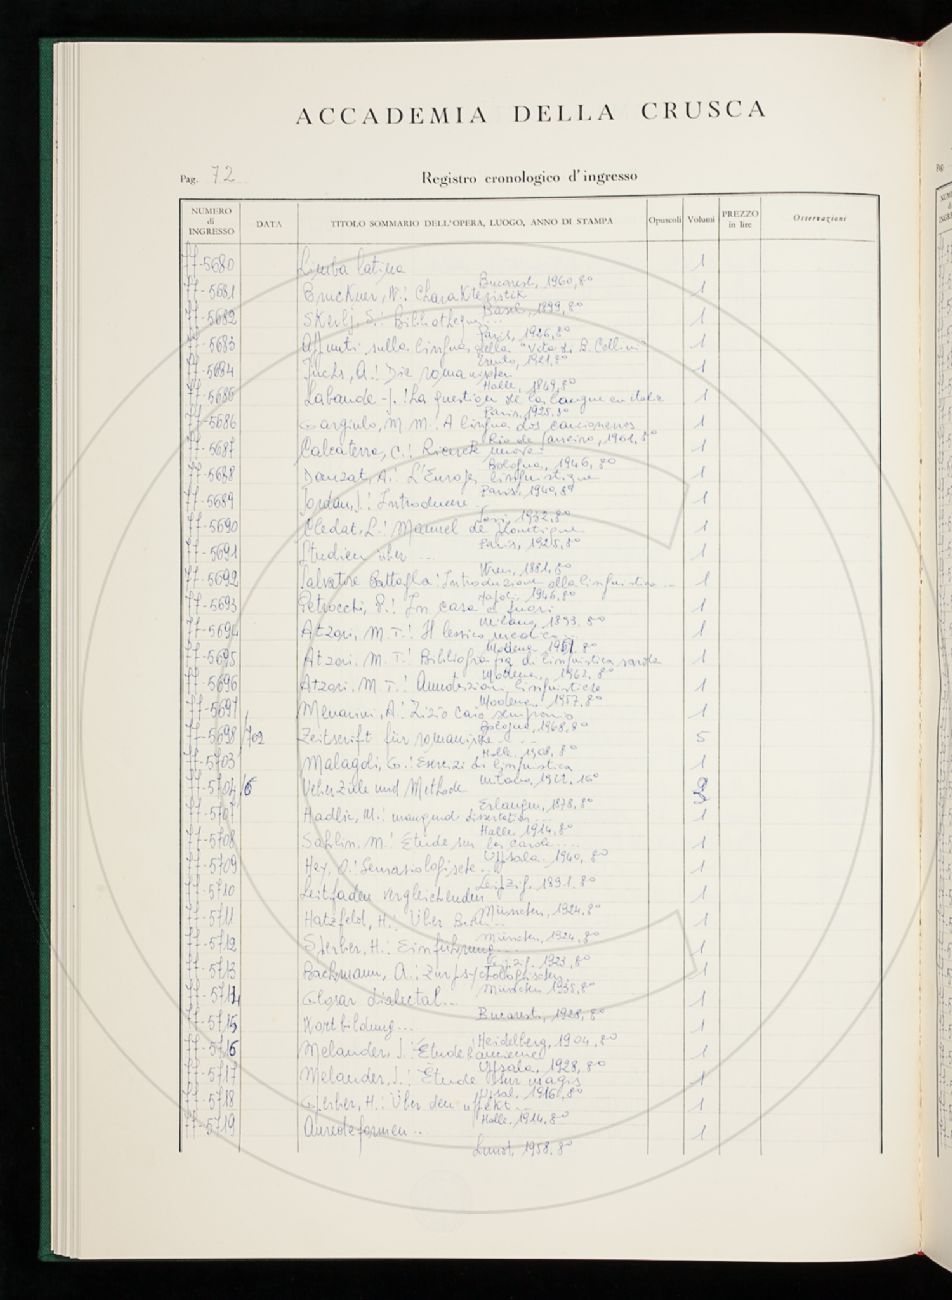 ACCADEMIA DELLA CRUSCA
Pag. 72
Registro cronologico d'ingresso
NUMERO di INGRESSO DATA TITOLO SOMMARIO DELL'OPERA, LUOGO, ANNO DI STAMPA Opuscoli Volumi PREZZO in lire Osservazioni
77-5680 Limba latina 1
Bucarest, 1960, 8º
77-5681 Bruckner, W.: Charakteristik 1
Basel, 1899, 8º
77-5682 Skerlj, S.: Bibliothèque... 1
Paris, 1926, 8º
77-5683 Appunti sulla lingua della "Vita di B. Cellini" 1
Trento, 1921, 8º
77-5684 Fuchs, A.: Die romanischen 1
Halle, 1849, 8º
77-5685 Labande-J.: La question de la langue en Italie 1
Paris, 1925, 8º
77-5686 Gargiulo, M. M.: A lingua dos cancioneiros 1
Rio de Janeiro, 1961, 8º
77-5687 Calcaterra, C.: Ricerche nuove 1
Bologna, 1946, 8º
77-5688 Dauzat, A.: L'Europe linguistique 1
Paris, 1940, 8º
77-5689 Jordan, I.: Introducere... 1
Iasi, 1932, 8º
77-5690 Cledat, L.: Manuel de phonétique 1
Paris, 1925, 8º
77-5691 Studien über ... 1
Wien, 1881, 8º
77-5692 Salvatore Battaglia: Introduzione alla linguistica... 1
Napoli, 1946, 8º
77-5693 Petrocchi, P.: In casa e fuori 1
Milano, 1893, 8º
77-5694 Atzori, M. T.: Il lessico medico... 1
Modena, 8º
77-5695 Atzori, M. T.: Bibliografia di linguistica sarda 1
Modena, 1962, 8º
77-5696 Atzori, M. T.: Annotazioni linguistiche 1
Modena, 1957, 8º
77-5697 Menarini, A.: Tizio Caio Sempronio 1
Bologna, 1968, 8º
77-5698/702 Zeitscrift für romanische 5
Halle, 1908, 8º
77-5703 Malagoli, G.: Esercizi di linguistica 1
Milano, 1912, 16º
77-5704/6 Ueber Ziele und Methode 3
Erlangen, 1878, 8º
77-5707 Hadlich, M.: inaugural dissertation... 1
Halle, 1914, 8º
77-5708 Sahlin, M.: Etude sur la carole.... 1
Uppsala, 1940, 8º
77-5709 Hey, O.: Semasiologische... 1
Leipzig, 1891, 8º
77-5710 Leitfaden vergleichenden 1
München, 1924, 8º
77-5711 Hatzfeld, H.: Über 1
München, 1924, 8º
77-5712 Sperber, H.: Einführung... 1
Leipzig, 1923, 8º
77-5713 Bachmann, A.: Zur psychologischen... 1
München 1935, 8º
77-5714 Glosar dialectal... 1
Bucaresti, 1928, 8º
77-5715 Wortbildung... 1
Heidelberg, 1904, 8º
77-5716 Melander, J.: Etude l'ancienne 1
Uppsala, 1928, 8º
77-5717 Melander, J.: Etude sur magis 1
Upsal, 1916, 8º
77-5718 Sperber, H.: Über den affekt... 1
Halle, 1914, 8º
77-5719 Anredeformen... 1
Lund, 1958, 8º